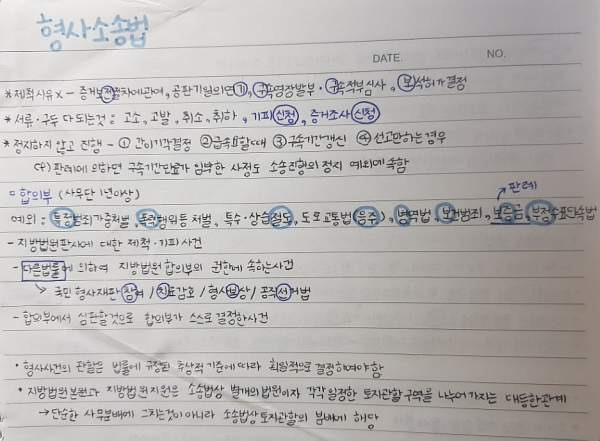 형사소송법
DATE. NO.
* 제척사유 X - 증거보전절차에관여, 공판기일의연기, 구속영장발부·구속적부심사, 보석허가결정
* 서류·구두 다 되는것 : 고소, 고발, 취소, 취하, 기피신청, 증거조사신청
* 정지하지 않고 진행 - ① 간이기각결정 ② 급속 요할때 ③ 구속기간갱신 ④ 선고만하는경우
(+) 판례에 의하면 구속기간만료가 임박한 사정도 소송진행의 정지 예외에 속함
▫ 합의부 (사무단 1년이상)
→ 판례
예외 : 특정범죄가중처벌, 폭력행위등 처벌, 특수·상습절도, 도로교통법(음주), 병역법, 보건범죄, 보증금, 부정수표단속법
- 지방법원판사에 대한 제척·기피사건
- 다른법률에 의하여 지방법원 합의부의 권한에 속하는사건
↳ 국민 형사재판 참여 / 치료감호 / 형사보상 / 공직선거법
- 합의부에서 심판할것으로 합의부가 스스로 결정한사건
• 형사사건의 관할은 법률에 규정된 추상적 기준에따라 획일적으로 결정하여야 함
• 지방법원본원과 지방법원지원은 소송법상 별개의법원이자 각각 일정한 토지관할 구역을 나누어 가지는 대등한관계
→ 단순한 사무분배에 그치는것이 아니라 소송법상 토지관할의 분배에 해당